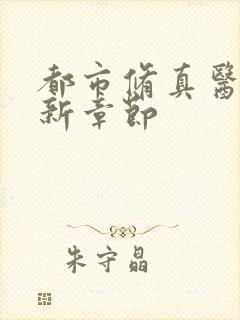 都市脩真醫
新章節
朱守晶